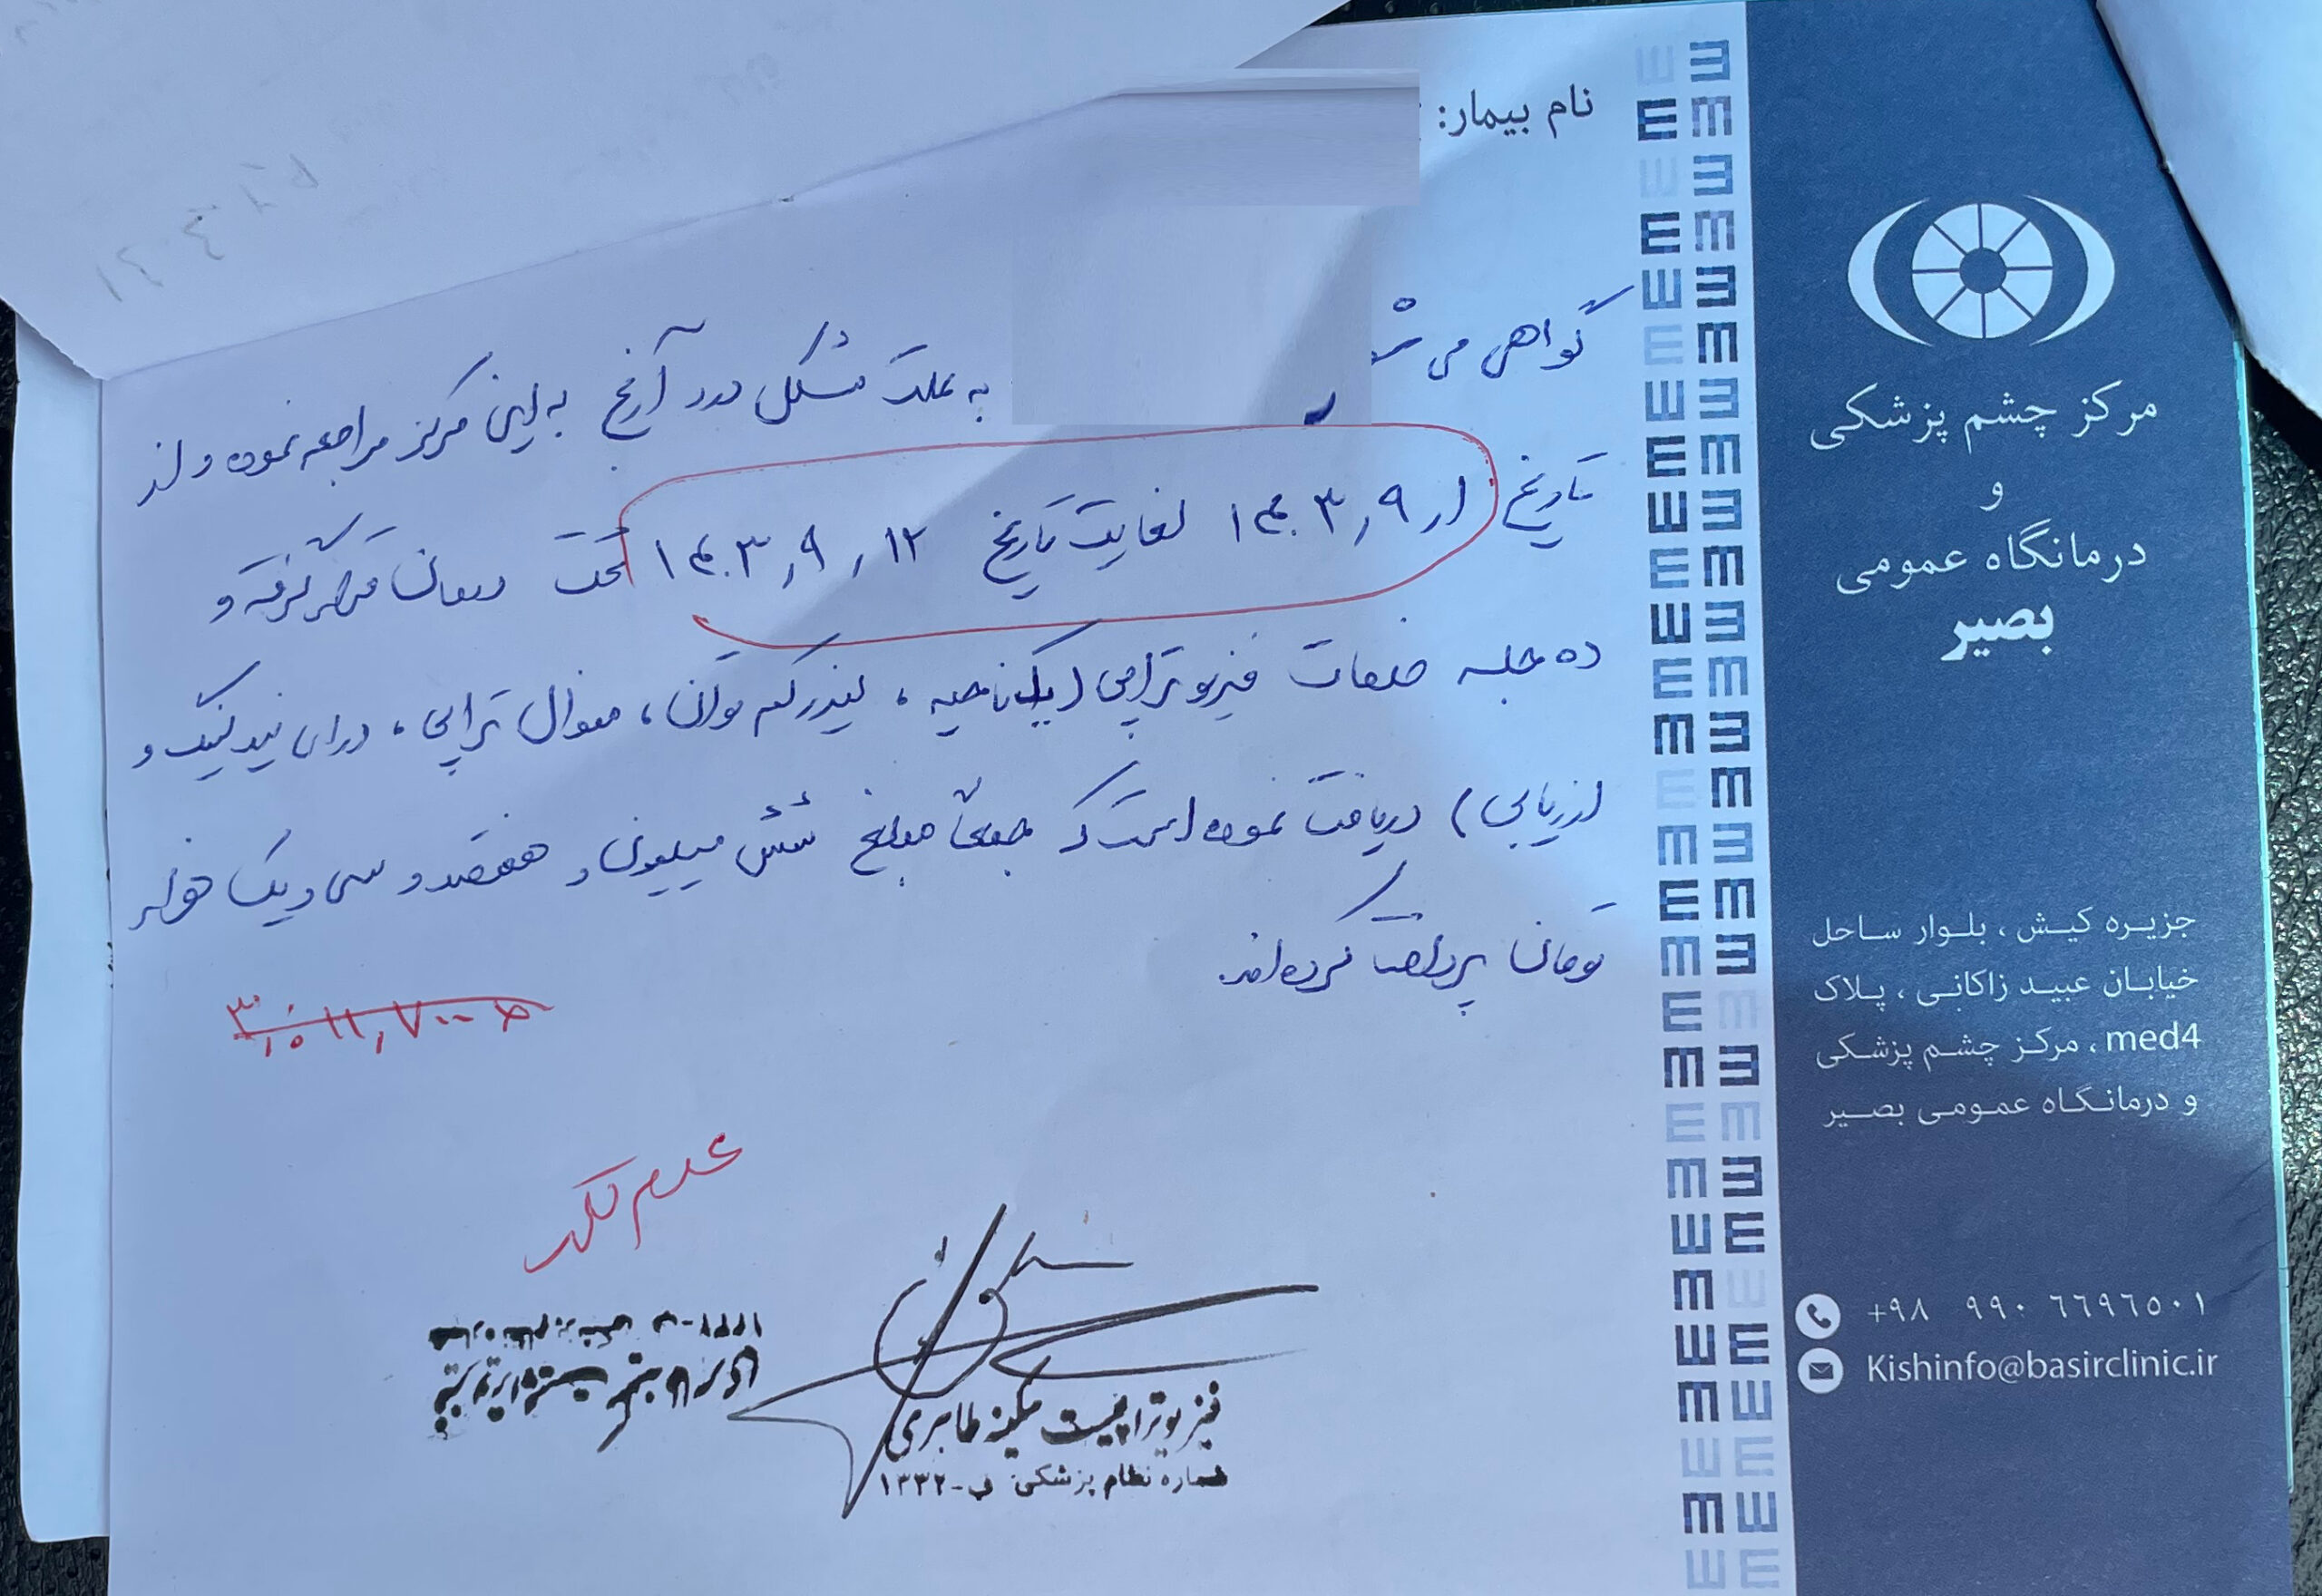 نام بیمار:
گواهی می شود به علت مشکل درد آرنج به این مرکز مراجعه نموده و از
تاریخ ۱۴۰۳٫۹٫۱ لغایت تاریخ ۱۴۰۳٫۹٫۱۲ تحت درمان قرار گرفته و
ده جلسه خدمات فیزیوتراپی (یک ناحیه، لیزر کم توان، منوال تراپی، درای نیدلینگ و
ارزیابی) دریافت نموده است که جمعاً مبلغ شش میلیون و هفتصد و سی و یک هزار
تومان پرداخت کرده اند.
عدم تکرر
فیزیوتراپیست سکینه طاهری
شماره نظام پزشکی: ف-۱۳۳۲
فیزیوتراپیست سکینه طاهری
شماره نظام پزشکی: ف-۱۳۳۲
مرکز چشم پزشکی
و
درمانگاه عمومی
بصیر
جزیره کیش، بلوار ساحل
خیابان عبید زاکانی، پلاک
med4، مرکز چشم پزشکی
و درمانگاه عمومی بصیر
+۹۸ ۹۹۰ ۶۶۹۶۵۰۱
Kishinfo@basirclinic.ir